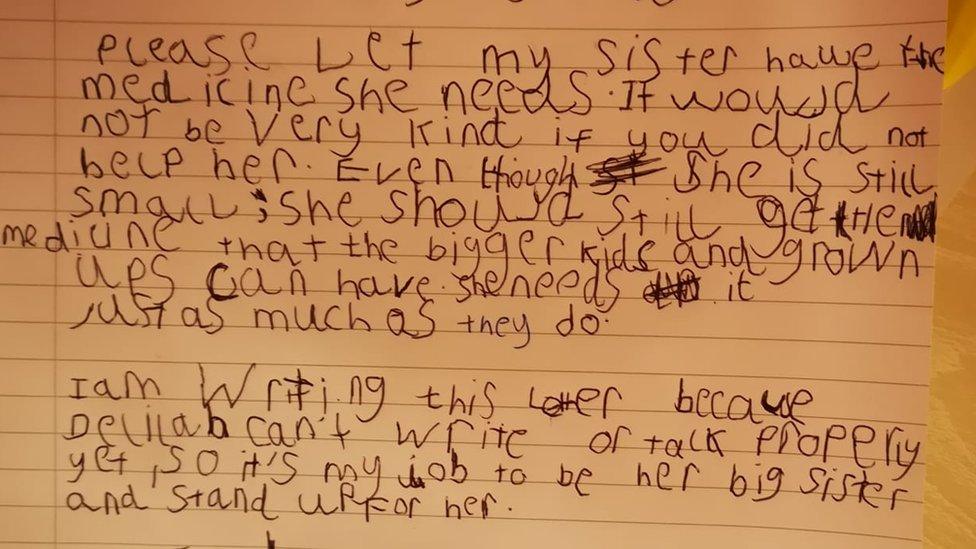 Please Let my sister have the
medicine she needs. It would
not be very kind if you did not
help her. Even though she is still
small; she should still get the
medicine that the bigger kids and grown
ups can have. she needs it
just as much as they do.
I am writing this letter because
Delilah can't write or talk properly
yet, so it's my job to be her big sister
and stand up for her.